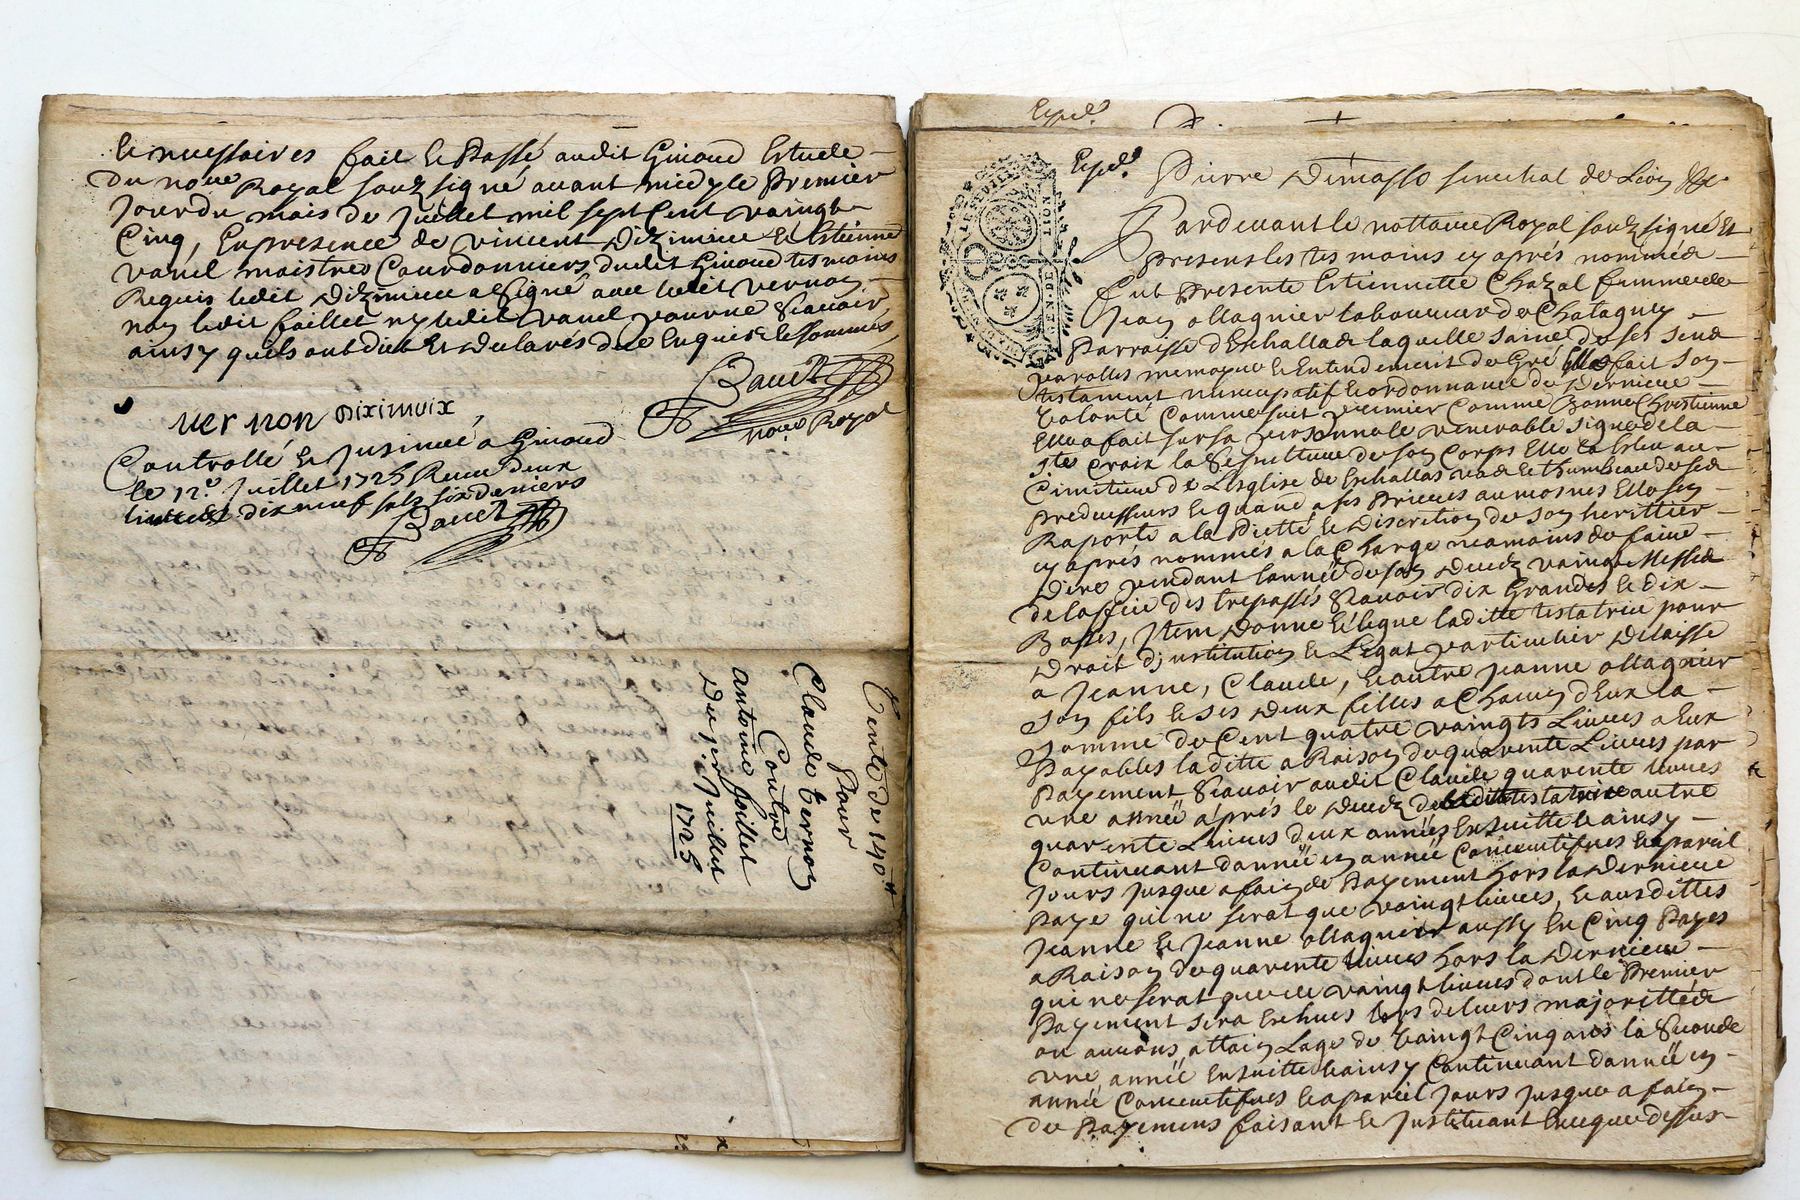 & necessaires fait & Passé audit Giuoud Estude
du no.re Royal souzsigné auant midy le Premier
Jour du mois de Juillet mil sept Cent vaingt
Cinq, En presence de vincent Dizimieu & Estienne
vanel maistres Courdonniers dudit Giuoud tesmoins
Requis ledit Dizimieu a Signé auec ledit vernon
non ledit faillet ny ledit vanel pour ne Scauoir
ainsy quils ont dict & declarés de ce Enquis & sommés
vernon Diximuix
no.re Royal
Controllé & Jnsinué a Giuoud
le 12.e Juillet 1725 Receu deux
liures dix neuf sols six deniers
Vente de 140
Pour
Claude Vernon
Contre
Antoine foillet
Du p.r Juillet
1725
Exped.
Exped.
Pierre Dimasso senechal de Lion &c.
Pardeuant le nottaire Royal souzsigné Et
presens les tesmoins cy aprés nommés
fut presente Estiennette Chazal femme de
Jean ollagnier laboureur de Chatagny
Parroisse d'Eschallas laquelle saine de ses sens
parolles memoyre & Entendement de Gré Elle a fait son
testament nuncupatif & ordonnance de derniere
volonté Comme suit premier Comme bonne Chrestienne
Elle a fait sur sa personne le venerable signe de la
s.te Croix la Sepulture de son Corps Elle la Esleu au
Cimitiere de L'Eglise de Eschallas vas & thumbeau de ses
predecesseurs & quand a ses Prieres aumosnes Ello sen
Raporte a la Pietté & Discretion de son heritier
cy aprés nommés a la Charge neamoins de faire
Dire pendant lannée de son Decedz vaingt Messes
de loffice des trepassés Scauoir dix Grandes & dix
Basses, Jtem Donne & legue laditte testatrice pour
Droit d'institution & Legat particulier Delaisse
a Jeanne, Claude, & autre Jeanne ollagnier
son fils & ses deux filles a Chacun d'Eux la
somme de Cent quatre vaingts Liures a Eux
Payables laditte a Raison de quarente Liures par
Payement Scauoir audit Claude quarente liures
vne année aprés le Decedz de laditte testatrice autre
quarente Liures deux années Ensuitte & ainsy
Continuant dannée en année Consecutifues & a pareil
Jours Jusque a fain de Payement hors la Derniere
Paye qui ne serat que vaingt liures, & ausdittes
Jeanne & Jeanne ollagnier aussy En Cinq Payes
a Raison de quarente liures hors la Derniere
qui ne serat que de vaingt liures dont le Premier
Payement sera Escheus lors de leurs majorittés
ou aurons attain Lage de vaingt Cinq ans la Seconde
vne année Ensuitte & ainsy Continuant dannée en
année Consecutifues & a pareil Jours Jusque a fain
de Payemens faisant & Jnstituant